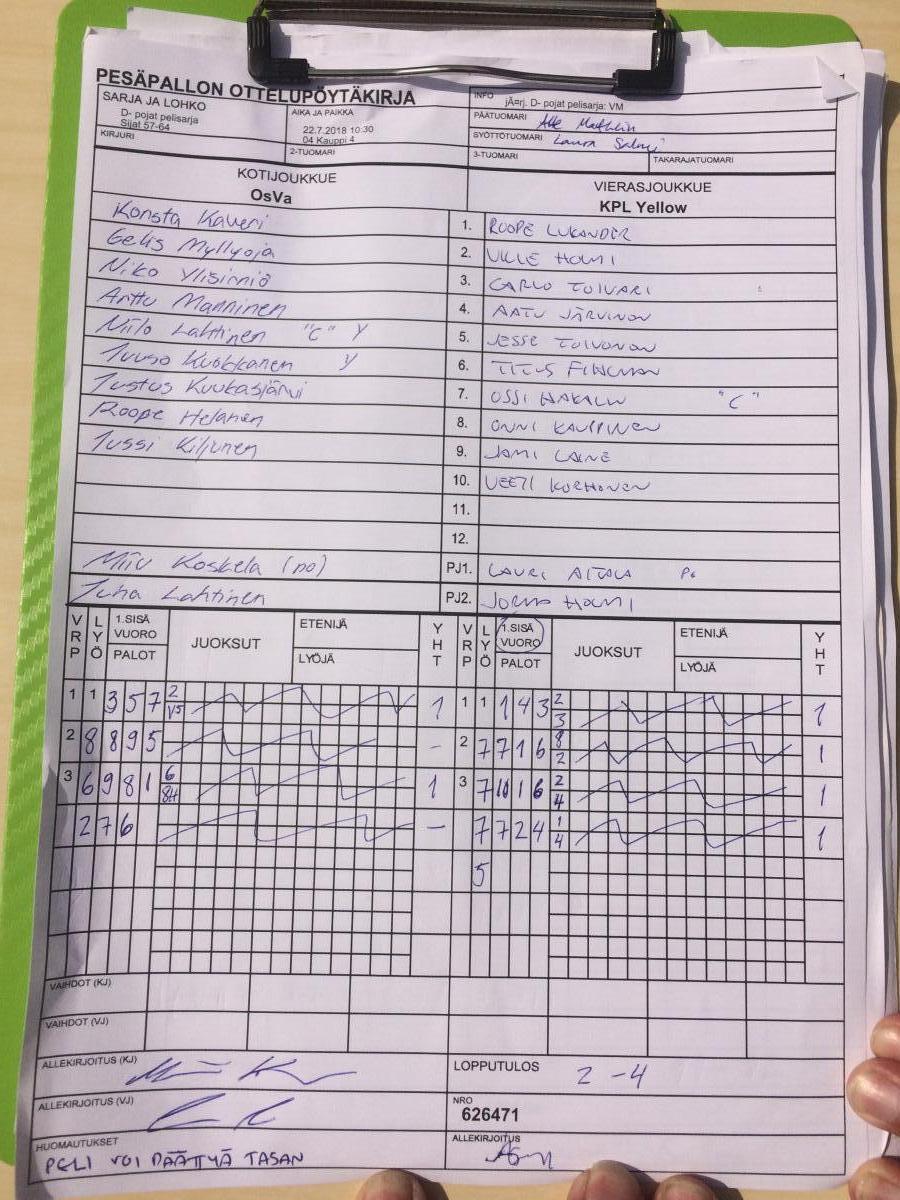 PESÄPALLON OTTELUPÖYTÄKIRJA
SARJA JA LOHKO
D- pojat pelisarja
Sijat 57-64
AIKA JA PAIKKA
22.7.2018 10:30
04 Kauppi 4
INFO
jÃ¤rj. D- pojat pelisarja: VM
PÄÄTUOMARI
SYÖTTÖTUOMARI Laura Salmi
KIRJURI
2-TUOMARI
3-TUOMARI
TAKARAJATUOMARI
KOTIJOUKKUE
OsVa
VIERASJOUKKUE
KPL Yellow
Konsta Kaveri 1. ROOPE LUKANDER
Eelis Myllyoja 2. VILLE HOLMI
Niko Ylisirniö 3. CARLO TOIVARI
Arttu Manninen 4. AATU JÄRVINEN
Niilo Lahtinen "C" Y 5. JESSE TOIVONEN
Juuso Kuokkanen Y 6. TITUS FINEMAN
Justus Kuukasjärvi 7. OSSI HAKALIN "C"
Roope Helanen 8. ONNI KAUPPINEN
Jussi Kiljunen 9. JAMI LAINE
10. VEETI KORHONEN
11.
12.
Miiv Koskela (no) PJ1. LAURI AITALA
Juha Lahtinen PJ2. JORMA HOLMI
VRP LYÖ 1.SISÄ VUORO PALOT JUOKSUT ETENIJÄ LYÖJÄ YHT VRP LYÖ 1.SISÄ VUORO PALOT JUOKSUT ETENIJÄ LYÖJÄ YHT
1 1 3 5 7 2 V5 1 1 1 1 4 3 2 3 1
2 8 8 9 5 - 2 7 7 1 6 8 2 1
3 6 9 8 1 6 8H 1 3 7 10 1 6 2 4 1
2 7 6 - 7 7 2 4 1 4 1
5
VAIHDOT (KJ)
VAIHDOT (VJ)
ALLEKIRJOITUS (KJ)
LOPPUTULOS 2 - 4
ALLEKIRJOITUS (VJ)
NRO
626471
HUOMAUTUKSET
PELI VOI PÄÄTTYÄ TASAN
ALLEKIRJOITUS